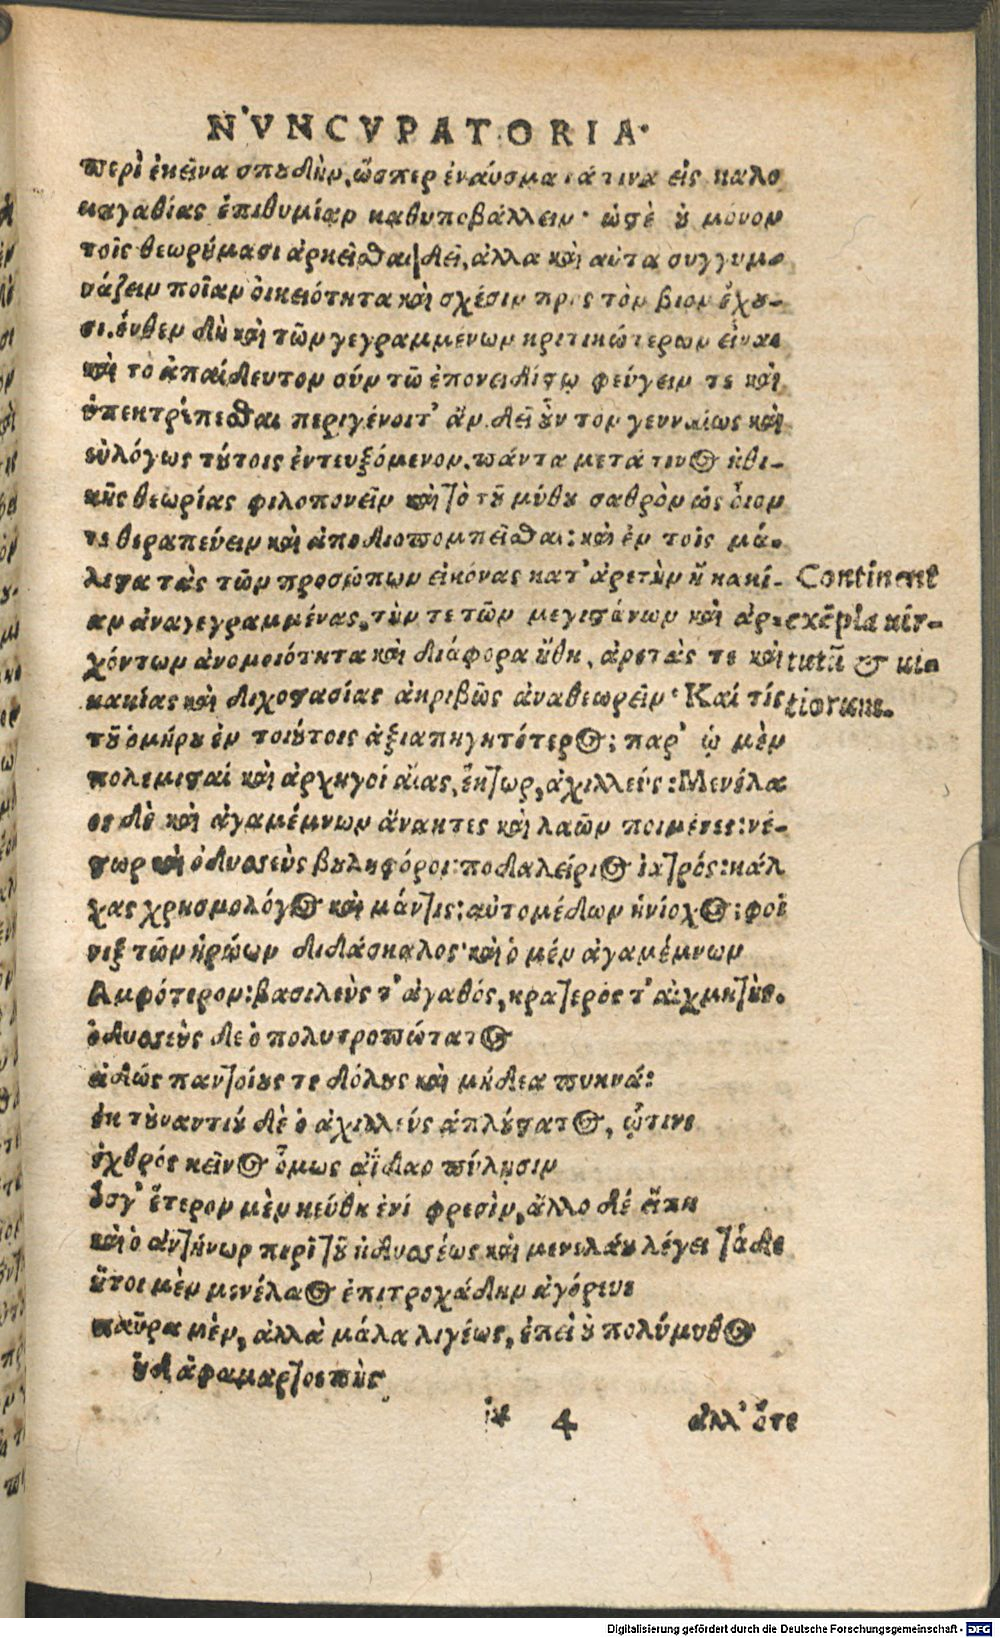 NVNCVPATORIA.
περὶ ἐκεῖνα σπουδὴν, ὥσπερ ἐναύσματά τινα εἰς καλο
καγαθίας ἐπιθυμίαν καθυποβάλλειν· ὡστὲ οὐ μόνον
τοῖς θεωρήμασι ἀρκεῖσθαι δεῖ, ἀλλα καὶ αὐτα συγγυμ-
νάζειν ποῖαν ὀικειότητα καὶ σχέσιν πρὸς τὸν βιον ἔχου-
σι. ἔνθεν δὴ καὶ τῶν γεγραμμένων κριτικώτερων εἶναι
καὶ τὸ ἀπαίδευτον σύν τῶ ἐπονειδίστῳ φεύγειν τε καὶ
ὑπεκτρέπεσθαι περιγένοιτ' ἄν. δεῖ οὖν τον γενναίως καὶ
εὐλόγως τούτοις ἐντευξόμενον, πάντα μετά τινος ἠθι-
κῆς θεωρίας φιλοπονεῖν καὶ τὸ τοῦ μύθου σαθρὸν ὡς οἷον
τε θεραπεύειν καὶ ἀποδιοπομπεῖσθαι: καὶ ἐν τοῖς μά-
λιστα τὰς τῶν προσώπων εἰκόνας κατ' ἀρετὴν ἢ κακί-
αν ἀναγεγραμμένας, τὴν τε τῶν μεγιστάνων καὶ ἀρ-
χόντων ἀνομοιότητα καὶ διάφορα ἤθη, ἀρετὰς τε καὶ
κακίας καὶ διχοστασίας ἀκριβῶς ἀναθεωρεῖν· Καί τίς
Continent
exēpla uir-
tutū & uia
tiorum.
τοῦ ὁμήρου ἐν τοιούτοις ἀξιαπηγητότερος; παρ' ᾧ μὲν
πολεμισταί καὶ ἀρχηγοί αἴας, ἕκτωρ, ἀχιλλεύς: Μενέλα
ος δὲ καὶ ἀγαμέμνων ἄνακτες καὶ λαῶν ποιμένες: νέ-
στωρ καὶ ὀδυσσεὺς βουληφόροι: ποδαλείριος ἰατρός: κάλ
χας χρησμολόγος καὶ μάντις: αὐτομέδων ἡνίοχος: φοῖ
νιξ τῶν ἡρώων διδάσκαλος· καὶ ὁ μέν ἀγαμέμνων
Ἀμφότερον: βασιλεὺς τ' ἀγαθός, κρατερός τ' αἰχμητὴς.
ὀδυσσεὺς δε ὁ πολυτροπώτατος
εἰδώς παντοίους τε δόλους καὶ μήδεα πυκνά:
ἐκ τοὐναντίου δὲ ὁ ἀχιλλεύς ἁπλούστατος, ᾧτινι
ἐχθρός κεῖνος ὅμως ἀΐδαο πύλησιν
ὅσγ' ἕτερον μὲν κεύθη ἐνί φρεσὶν, ἄλλο δέ εἴπη
καὶ ὁ ἀντήνωρ περὶ τοῦ ὀδυσσέως καὶ μενελάου λέγει τάδε
ἤτοι μὲν μενέλαος ἐπιτροχάδην ἀγόρευε
παῦρα μὲν, ἀλλὰ μάλα λιγέως, ἐπεὶ οὐ πολύμυθος
οὐδ ἀφαμαρτοεπὴς
* 4 ἀλλ' ὅτε
Digitalisierung gefördert durch die Deutsche Forschungsgemeinschaft - DFG